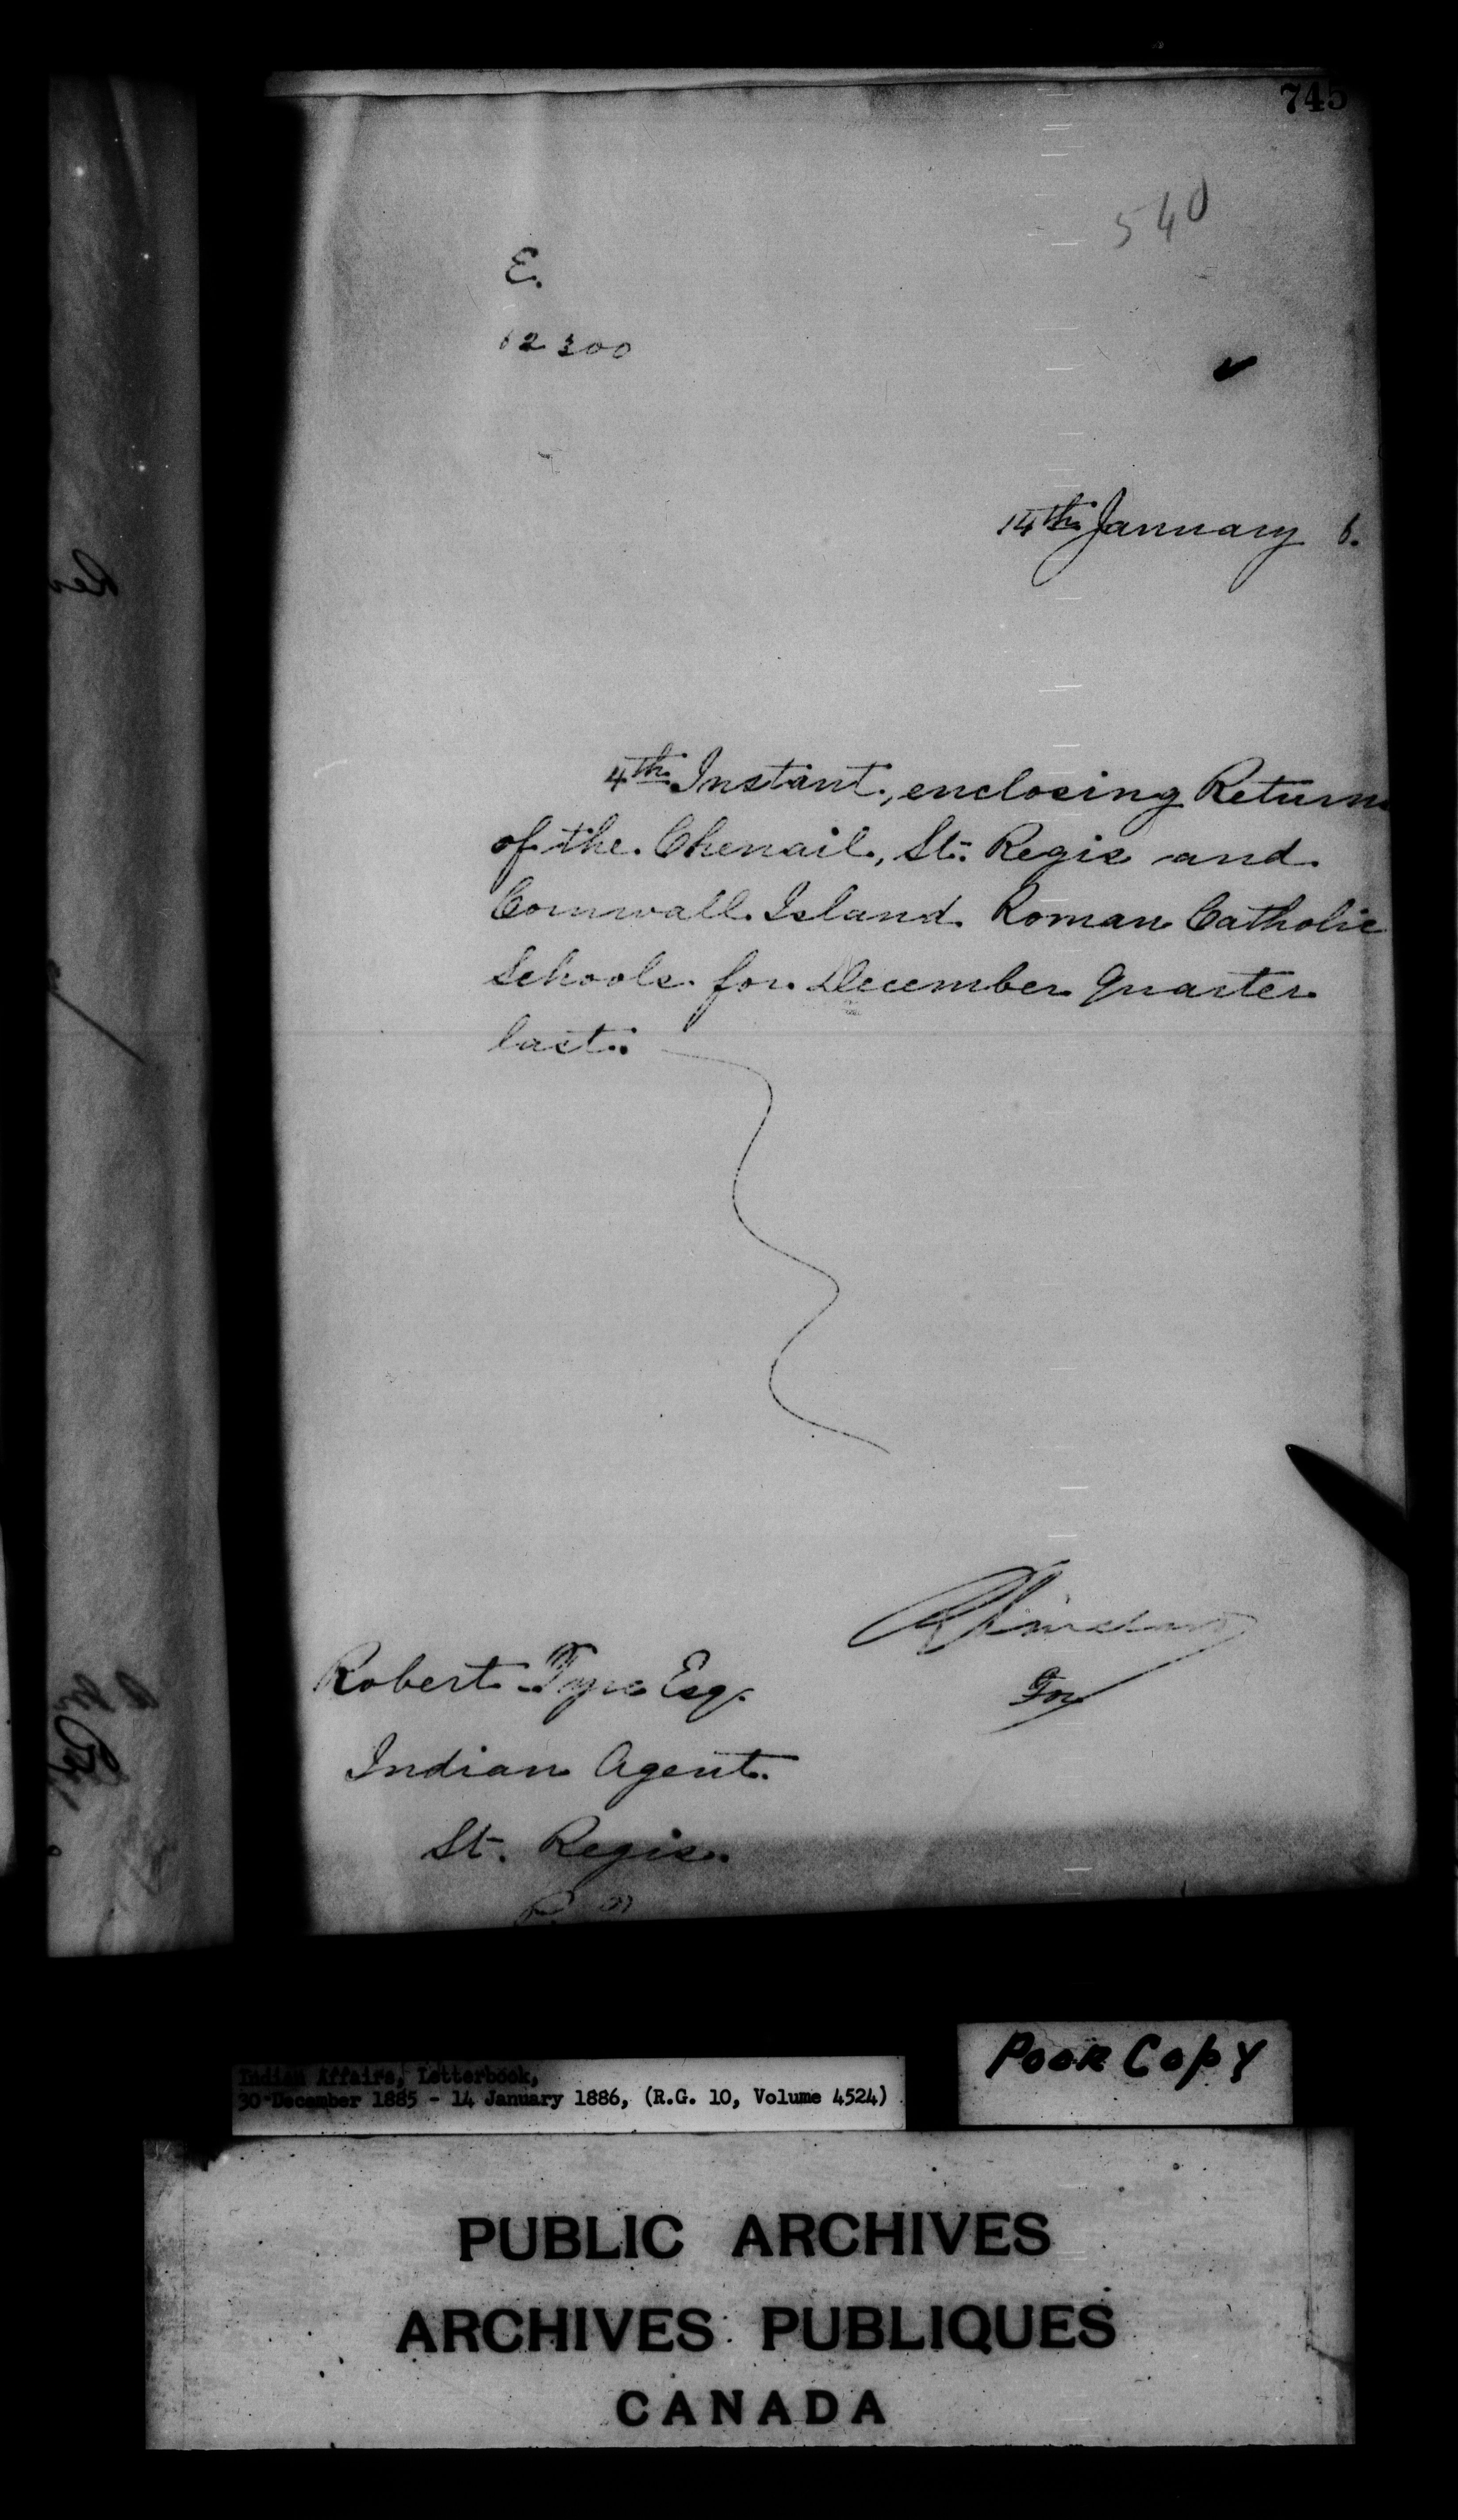 745
540
E.
62300
14th January 6.
4th Instant, enclosing Returns
of the Chenail, St. Regis and
Cornwall Island Roman Catholic
Schools for December Quarter
last.
R Sinclair
For
Robert Tyre Esq.
Indian Agent.
St. Regis.
Indian Affairs, Letterbook,
30 December 1885 - 14 January 1886, (R.G. 10, Volume 4524)
Poor Copy
PUBLIC ARCHIVES
ARCHIVES PUBLIQUES
CANADA